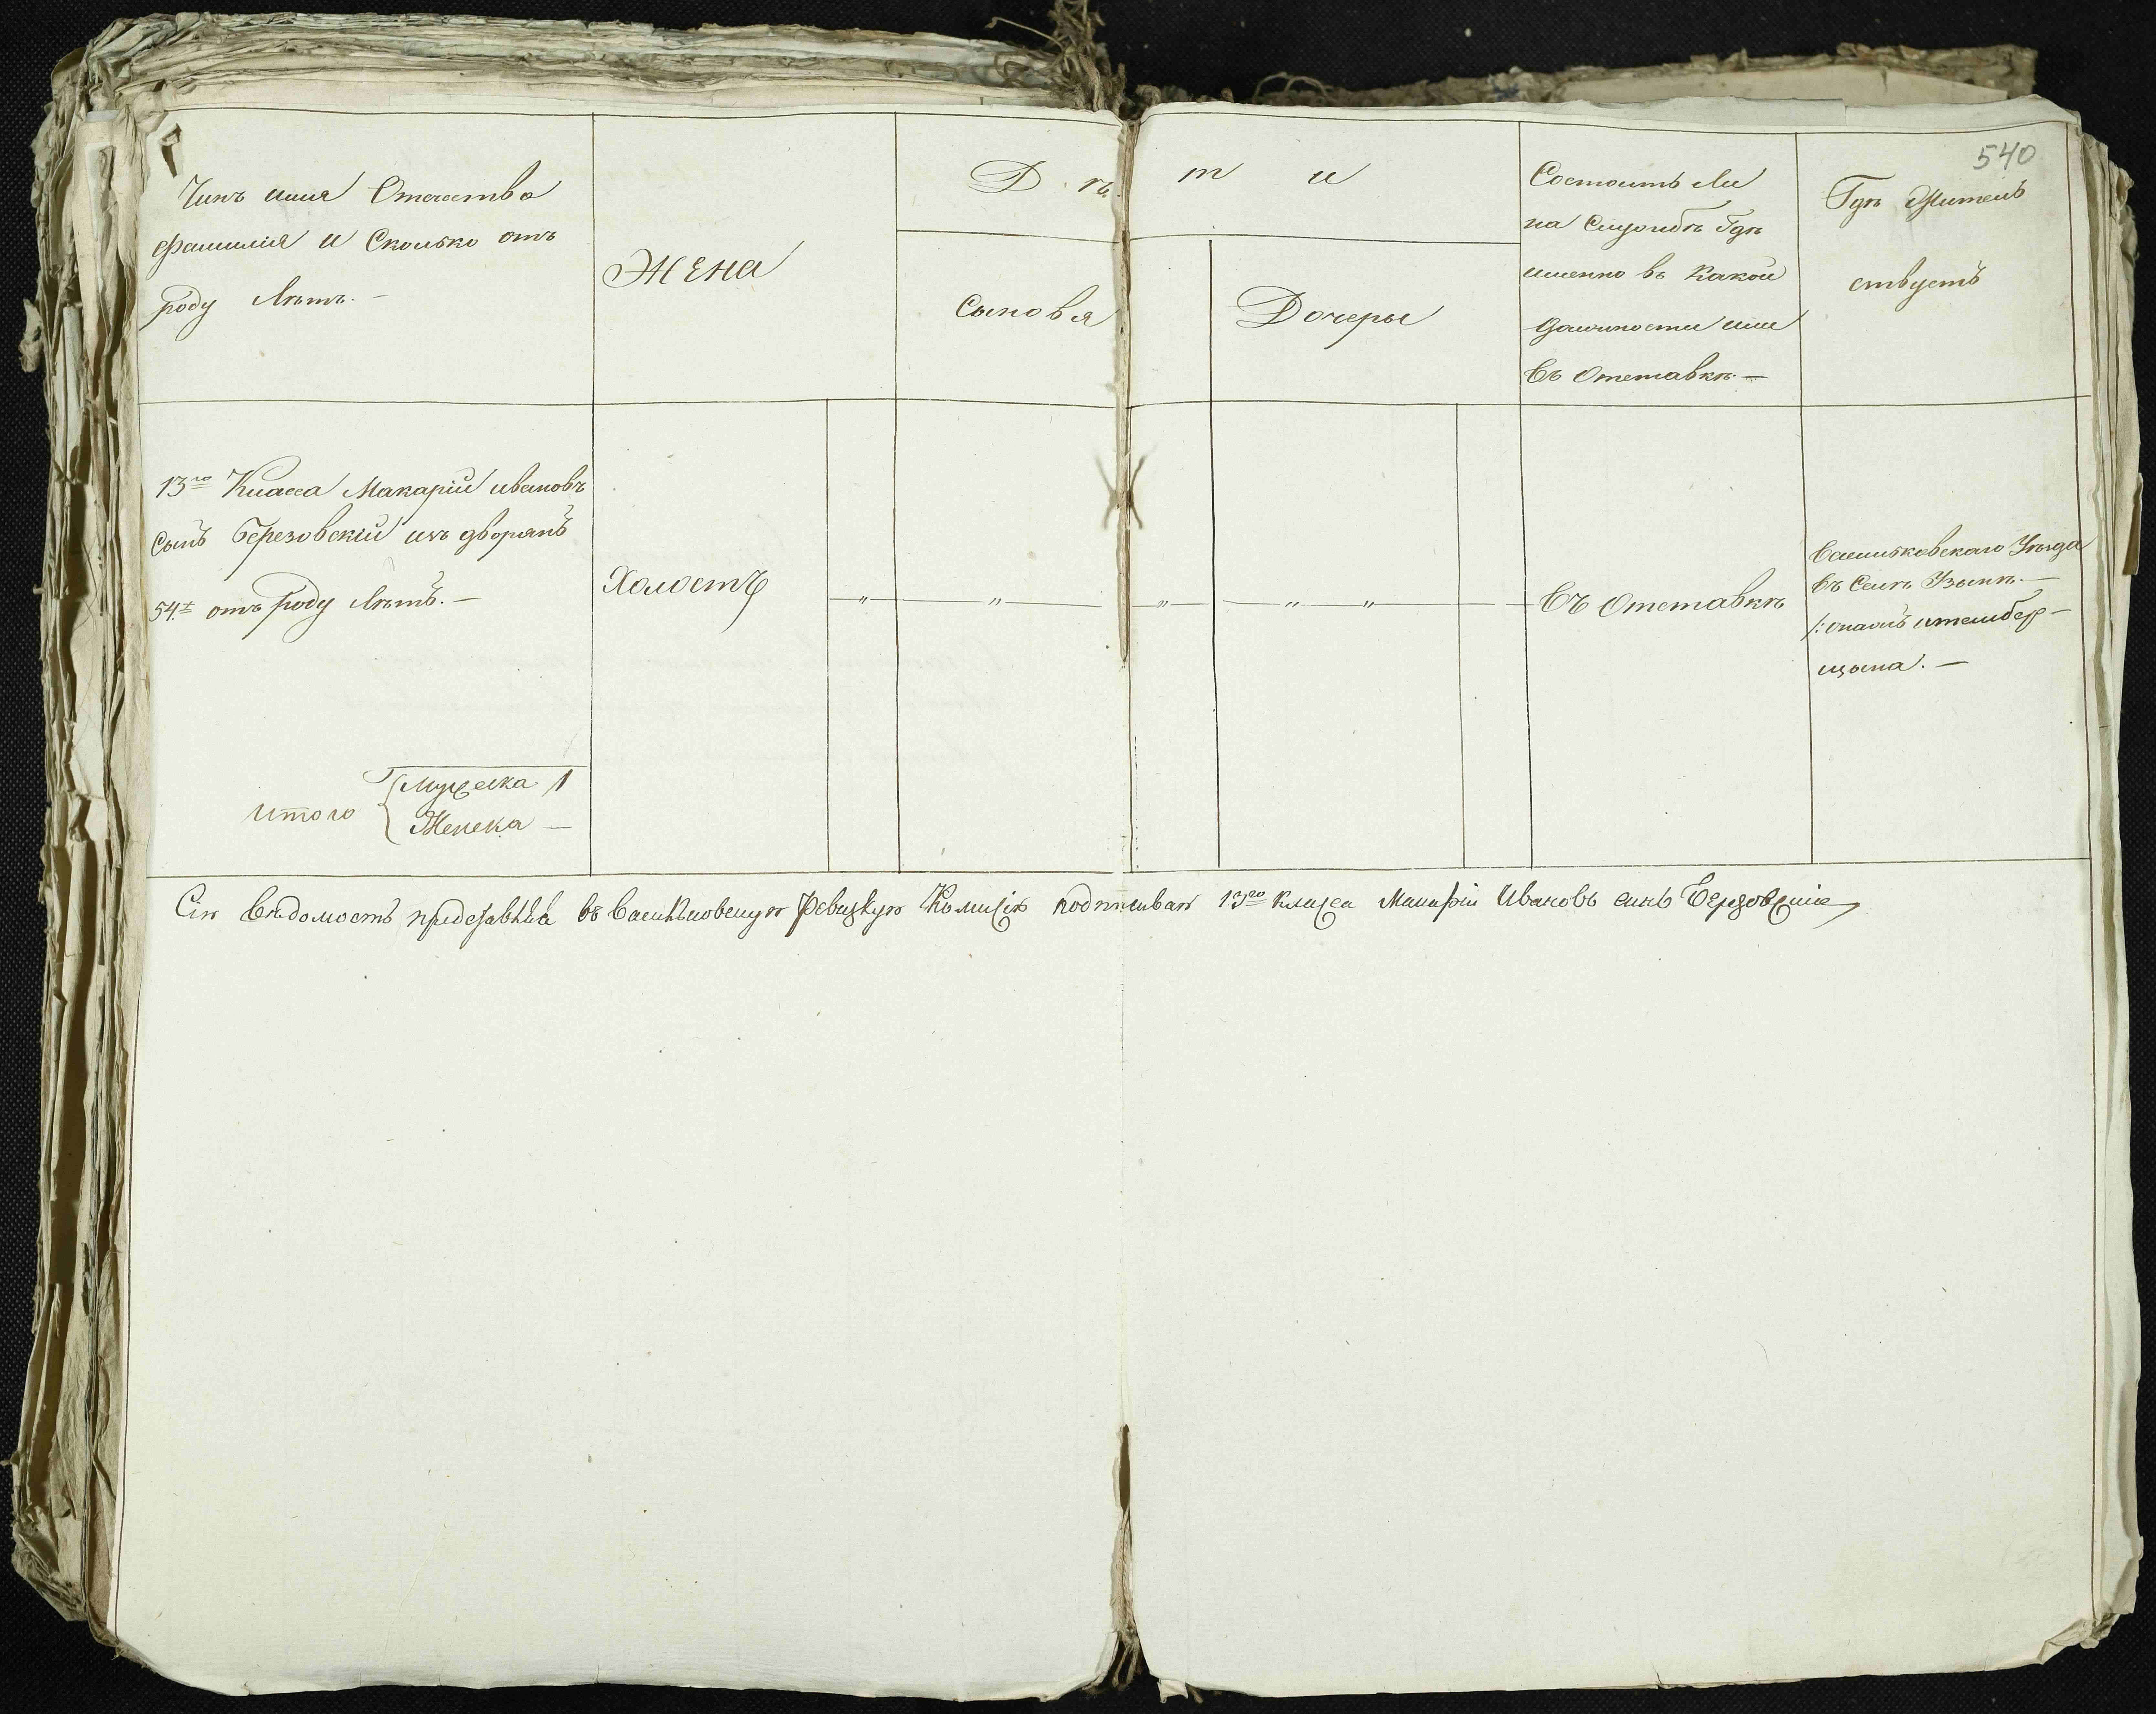 540
Чинъ имя Отечество
фамилія и Сколько отъ
роду Лѣтъ. —
Жена
Дѣти
Сыновя
Дочеры
Состоитъ Ли
на Службѣ Гдѣ
именно въ Какой
Должности или
Въ Отставкѣ. —
Гдѣ Жител
ствуетъ
13го Класса Макарій ивановъ
сынъ Березовскій изъ дворянъ
54х отъ роду Лѣтъ. —
Холостъ
— " — " — " — " — " —
Въ Отставкѣ
Васильковскаго Уѣзда
въ Селѣ Узынѣ. —
щына. —
итого
Мужеска 1
Женска —
Сію Вѣдомость въ Васильковскую Ревизкую Комисію подписиваю 13го класса Макарій Ивановъ синъ Березовскій